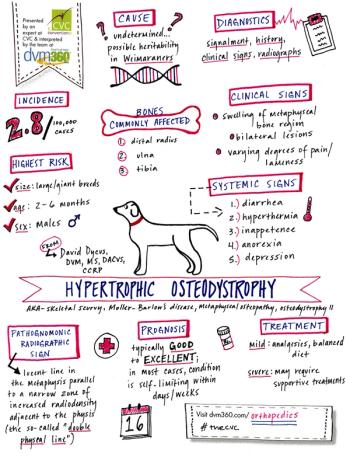 Presented
by an
expert at
CVC & interpreted
by the team at
CVC
dvm360
CAUSE
? undetermined... ?
possible heritability
in Weimaraners
DIAGNOSTICS
signalment, history,
clinical signs, radiographs
INCIDENCE
2.8/100,000
cases
BONES
COMMONLY AFFECTED
1. distal radius
2. ulna
3. tibia
CLINICAL SIGNS
swelling of metaphyseal
bone region
bilateral lesions
varying degrees of pain/
lameness
HIGHEST RISK
size: large/giant breeds
age: 2-6 months
sex: Males ♂
SYSTEMIC SIGNS
1.) diarrhea
2.) hyperthermia
3.) inappetence
4.) anorexia
5.) depression
FROM
David Dycus,
DVM, MS, DACVS,
CCRP
HYPERTROPHIC OSTEODYSTROPHY
AKA-skeletal scurvy, Moller-Barlow's disease, metaphyseal osteopathy, osteodystrophy II
PATHOGNOMONIC
RADIOGRAPHIC
SIGN
lucent line in
the metaphysis parallel
to a narrow zone of
increased radiodensity
adjacent to the physis
(the so-called "double
physeal line")
PROGNOSIS
typically GOOD
to EXCELLENT;
in most cases, condition
is self-limiting within
days/weeks
16
TREATMENT
mild: analgesics, balanced
diet
severe: may require
supportive treatments
Visit dvm360.com/orthopedics
#thecvc